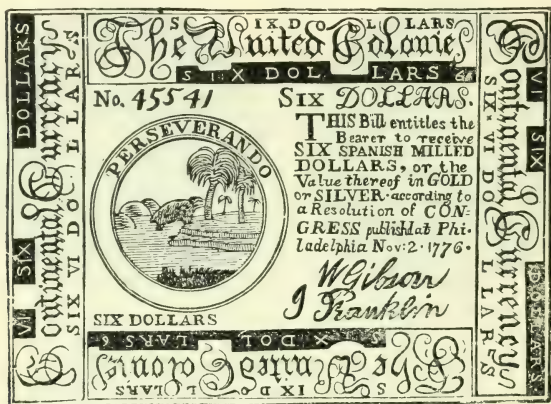 SIX DOLLARS
The United Colonies
SIX DOLLARS
No. 45541
SIX DOLLARS.
PERSEVERANDO
THIS Bill entitles the
Bearer to receive
SIX SPANISH MILLED
DOLLARS, or the
Value thereof in GOLD
or SILVER according to
a Resolution of CON-
GRESS publish'd at Phi-
ladelphia Nov: 2. 1776.
W Gibson
J Franklin
SIX DOLLARS
VI SIX DOLLARS
Continental Currency
SIX VI DOLLARS
VI SIX DOLLARS
Continental Currency
SIX VI DOLLARS
SIX DOLLARS 6
The United Colonies
SIX DOLLARS